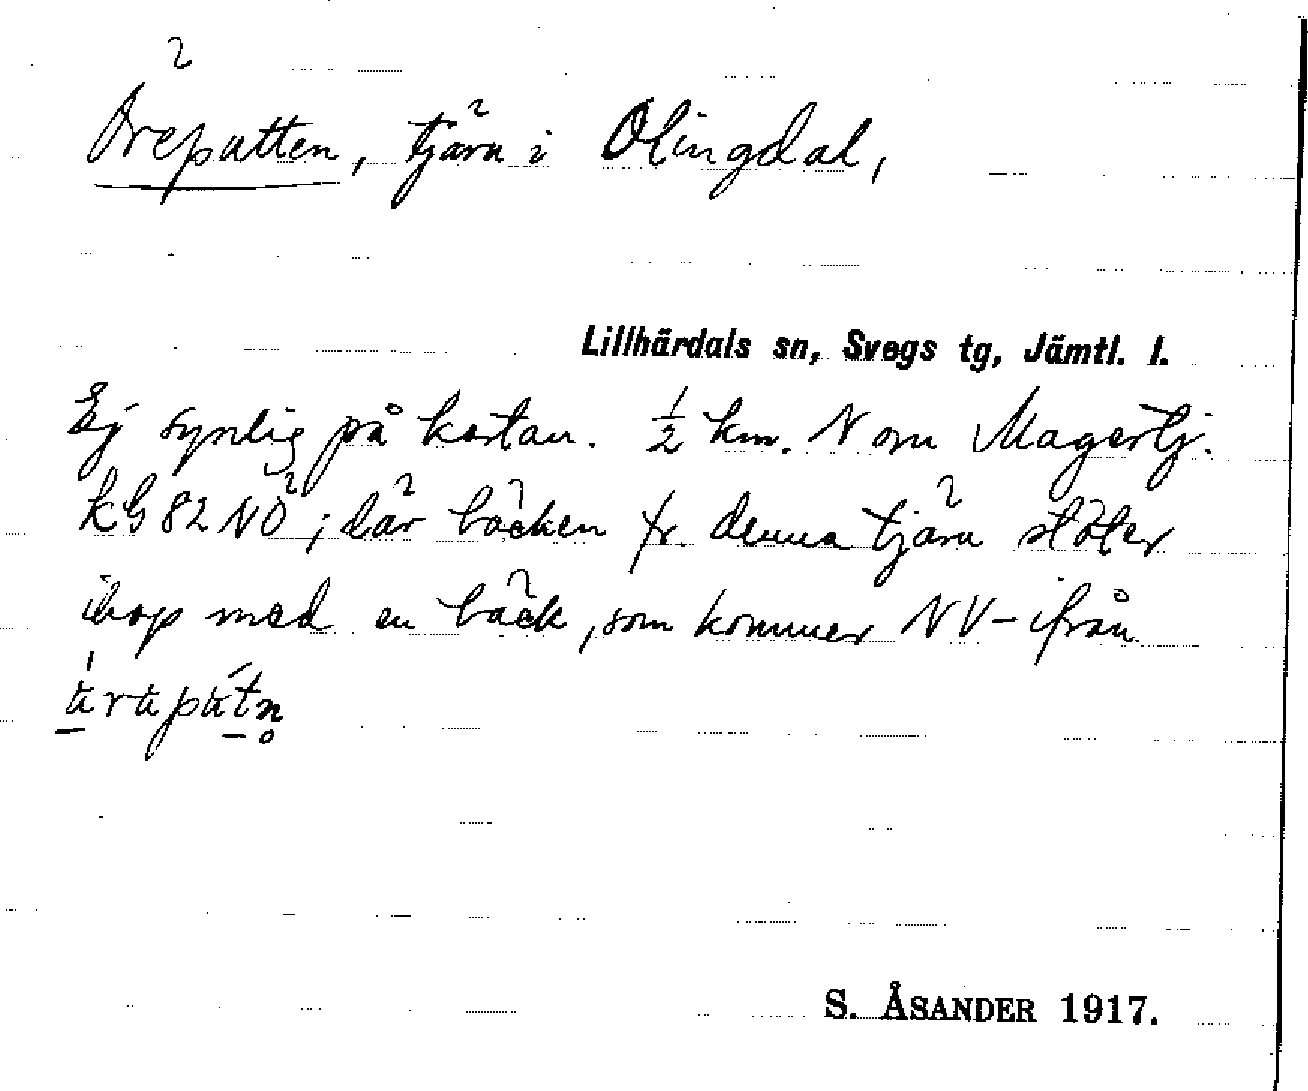 Örepatten, tjärn i Olingdal,
Lillhärdals sn, Svegs tg, Jämtl. l.
Ej synlig på kartan. ½ km. N om Magertj.
kG 82 NÖ; där bäcken fr. denna tjärn stöter
ihop med en bäck, som kommer NV-ifrån
S. ÅSANDER 1917.